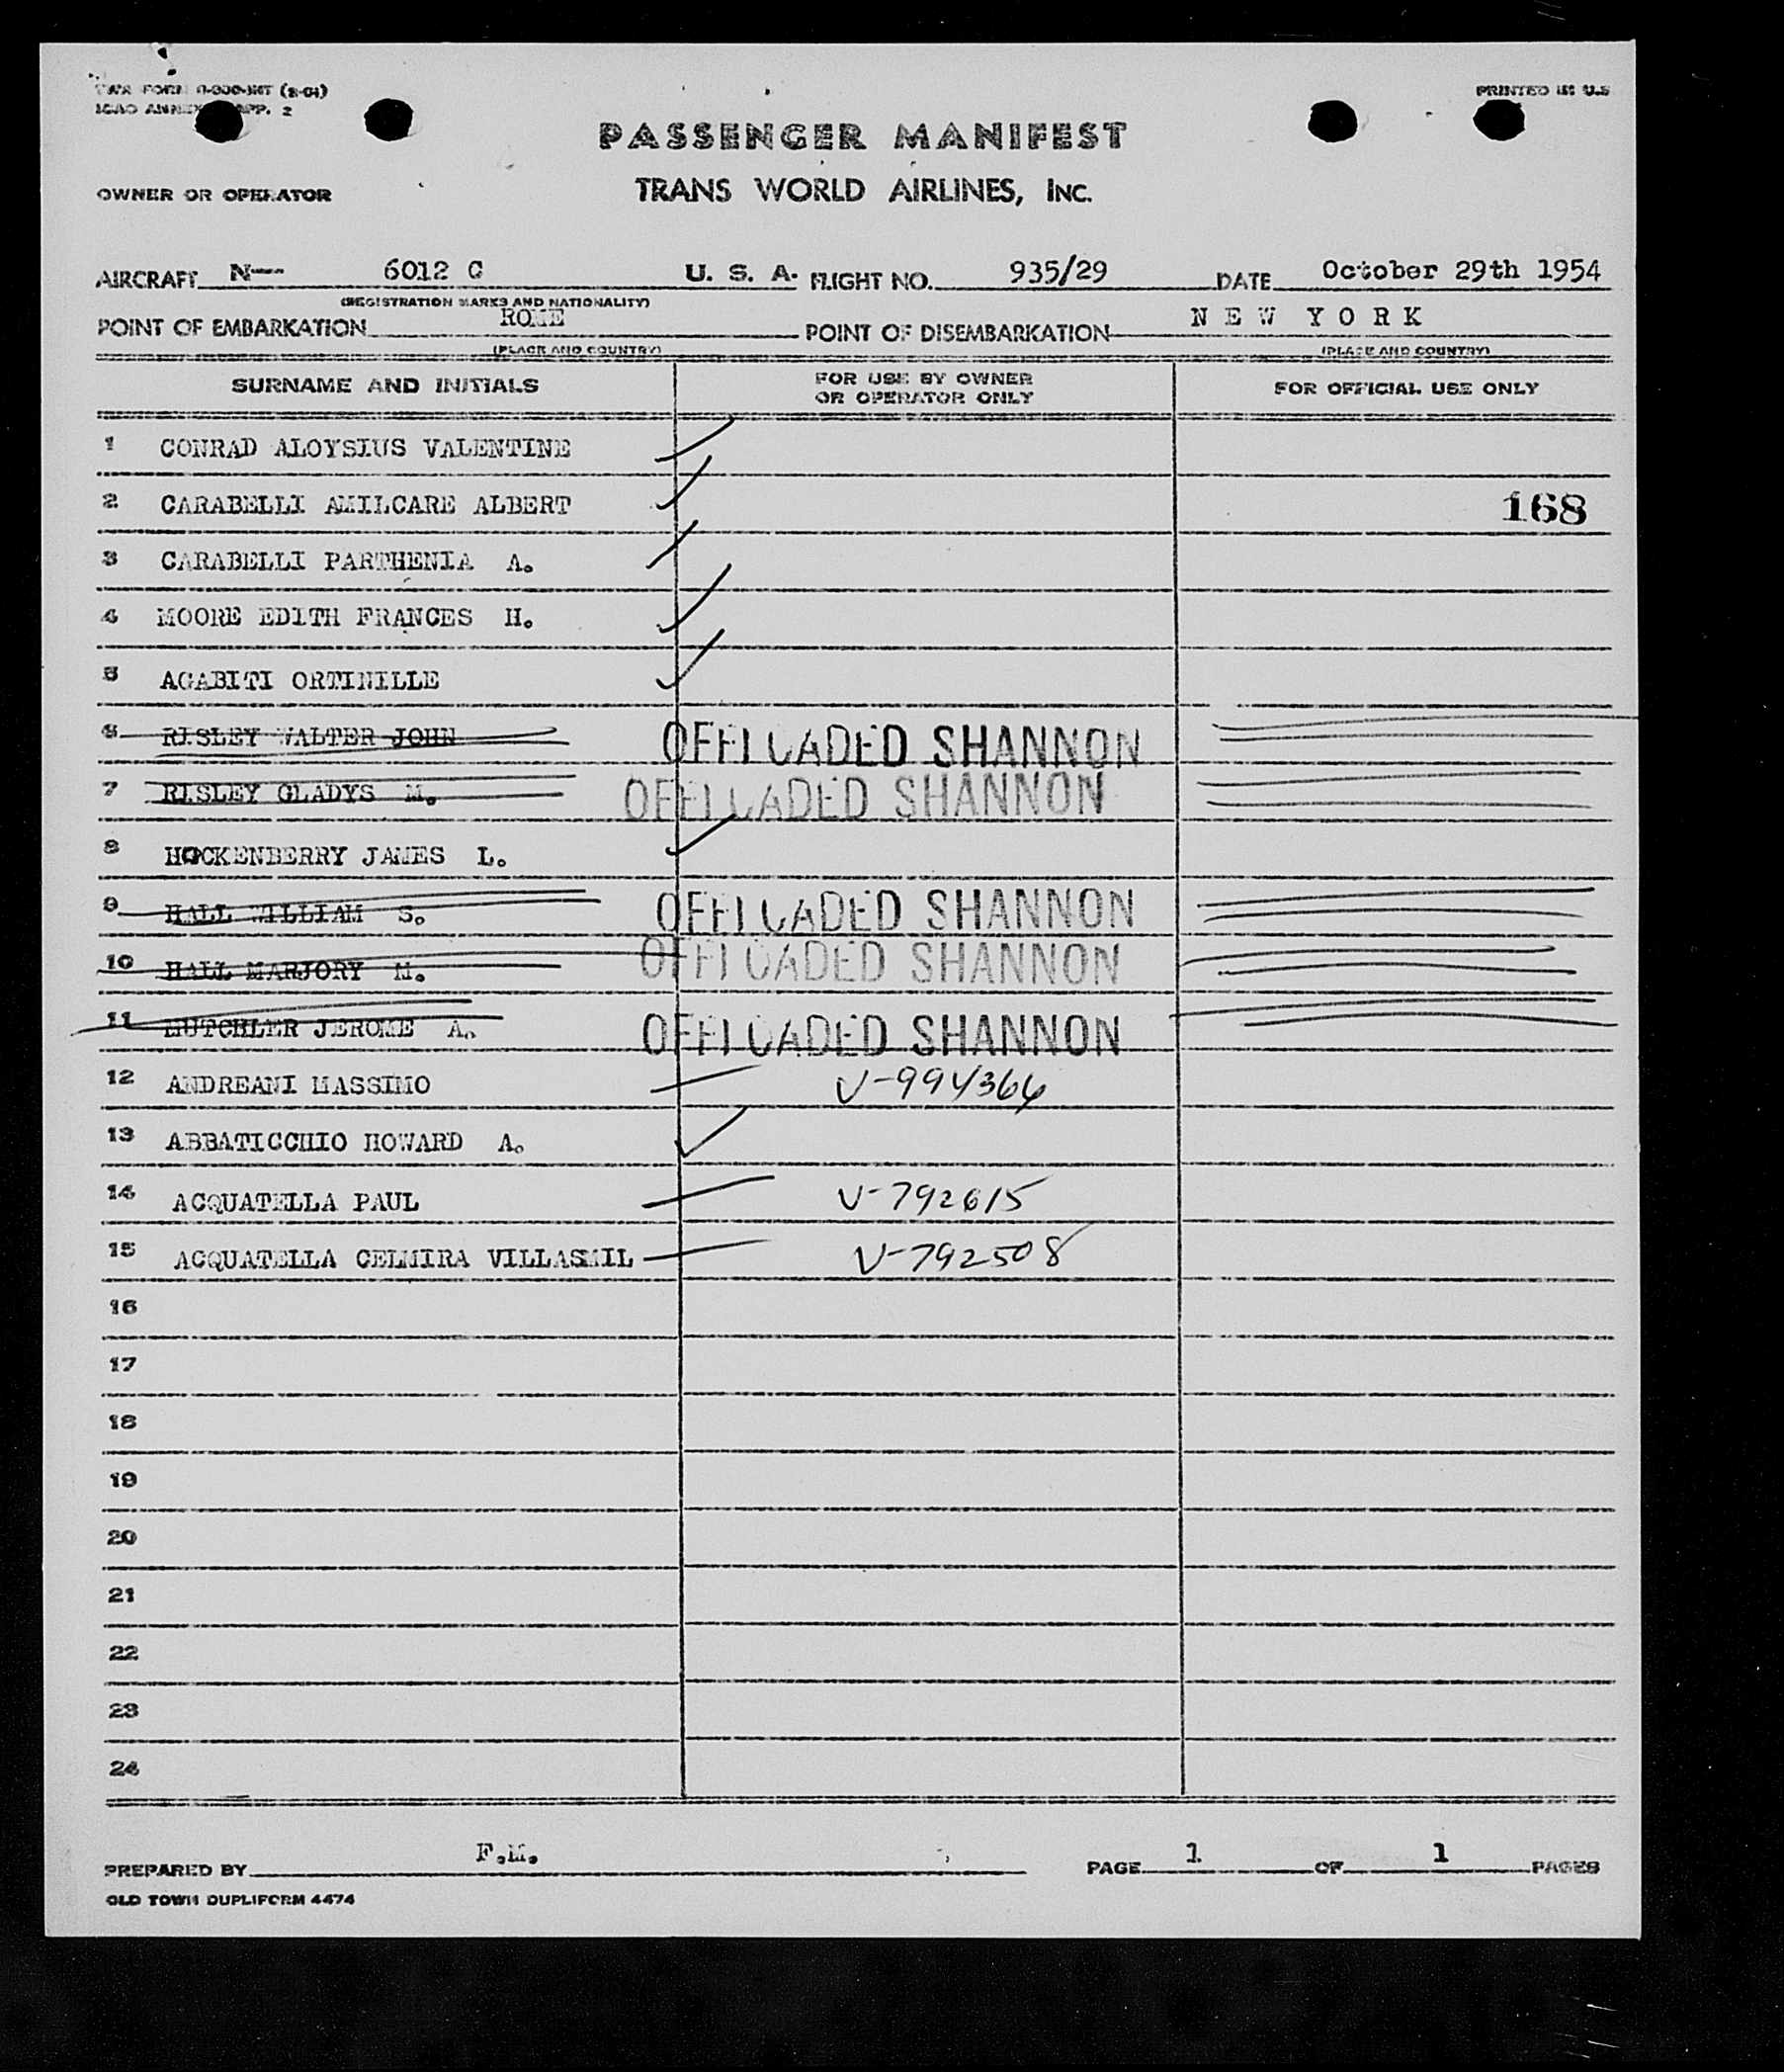 TWA FORM (8-54) PRINTED IN U.S
ICAO ANNEX APP. 2
PASSENGER MANIFEST
OWNER OR OPERATOR TRANS WORLD AIRLINES, INC.
AIRCRAFT N-- 6012 C U. S. A. FLIGHT NO. 935/29 DATE October 29th 1954
(REGISTRATION MARKS AND NATIONALITY)
POINT OF EMBARKATION ROME POINT OF DISEMBARKATION N E W Y O R K
(PLACE AND COUNTRY) (PLACE AND COUNTRY)
SURNAME AND INITIALS FOR USE BY OWNER OR OPERATOR ONLY FOR OFFICIAL USE ONLY
1 CONRAD ALOYSIUS VALENTINE
2 CARABELLI AMILCARE ALBERT 168
3 CARABELLI PARTHENIA A.
4 MOORE EDITH FRANCES H.
5 AGABITI ORTINILLE
6 RISLEY WALTER JOHN OFFLOADED SHANNON
7 RISLEY GLADYS M. OFFLOADED SHANNON
8 HOCKENBERRY JAMES L.
9 HALL WILLIAM S. OFFLOADED SHANNON
10 HALL MARJORY M. OFFLOADED SHANNON
11 HUTCHLER JEROME A. OFFLOADED SHANNON
12 ANDREANI MASSIMO V-994366
13 ABBATICCHIO HOWARD A.
14 ACQUATELLA PAUL V-792615
15 ACQUATELLA CELMIRA VILLASMIL V-792508
16
17
18
19
20
21
22
23
24
PREPARED BY F.M. PAGE 1 OF 1 PAGES
OLD TOWN DUPLIFORM 4474